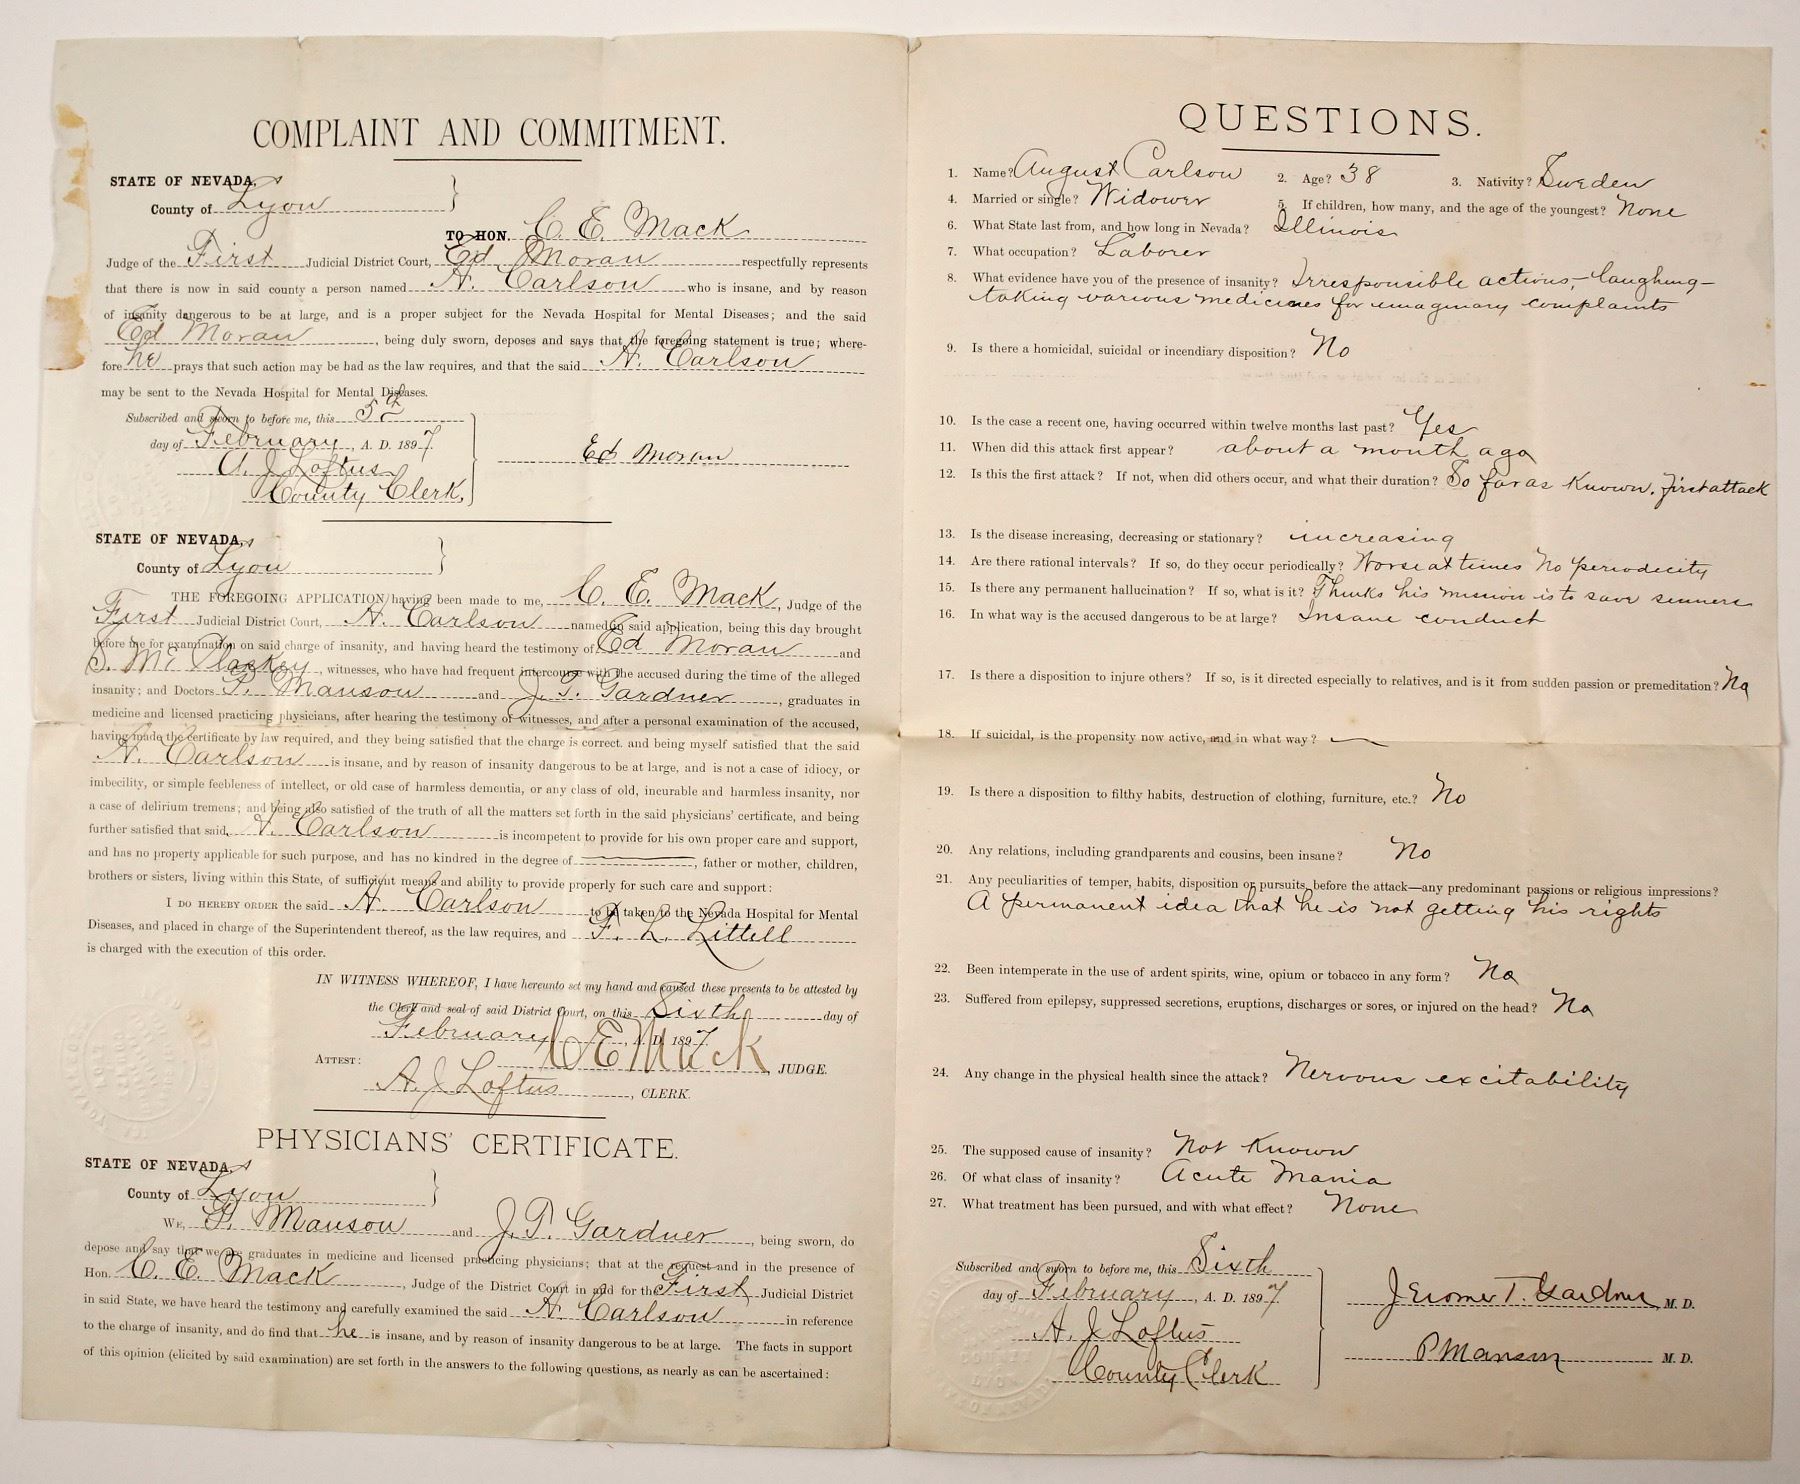 COMPLAINT AND COMMITMENT.
STATE OF NEVADA,
County of Lyon
TO HON. C. E. Mack
Judge of the First Judicial District Court, Ed Moran respectfully represents
that there is now in said county a person named A. Carlson who is insane, and by reason
of insanity dangerous to be at large, and is a proper subject for the Nevada Hospital for Mental Diseases; and the said
Ed Moran, being duly sworn, deposes and says that the foregoing statement is true; where-
fore he prays that such action may be had as the law requires, and that the said A. Carlson
may be sent to the Nevada Hospital for Mental Diseases.
Subscribed and sworn to before me, this 5th
day of February, A. D. 1897.
A. J. Loftus
County Clerk.
Ed Moran
STATE OF NEVADA,
County of Lyon
THE FOREGOING APPLICATION having been made to me, C. E. Mack, Judge of the
First Judicial District Court, A. Carlson named in said application, being this day brought
before me for examination on said charge of insanity, and having heard the testimony of Ed Moran and
witnesses, who have had frequent intercourse with the accused during the time of the alleged
insanity; and Doctors P. Manson and J. T. Gardner, graduates in
medicine and licensed practicing physicians, after hearing the testimony of witnesses, and after a personal examination of the accused,
having made the certificate by law required, and they being satisfied that the charge is correct. and being myself satisfied that the said
A. Carlson is insane, and by reason of insanity dangerous to be at large, and is not a case of idiocy, or
imbecility, or simple feebleness of intellect, or old case of harmless dementia, or any class of old, incurable and harmless insanity, nor
a case of delirium tremens; and being also satisfied of the truth of all the matters set forth in the said physicians' certificate, and being
further satisfied that said A. Carlson is incompetent to provide for his own proper care and support,
and has no property applicable for such purpose, and has no kindred in the degree of, father or mother, children,
brothers or sisters, living within this State, of sufficient means and ability to provide properly for such care and support:
I DO HEREBY ORDER the said A. Carlson to be taken to the Nevada Hospital for Mental
Diseases, and placed in charge of the Superintendent thereof, as the law requires, and F. L. Littell
is charged with the execution of this order.
IN WITNESS WHEREOF, I have hereunto set my hand and caused these presents to be attested by
the Clerk and seal of said District Court, on this Sixth day of
February, A. D. 1897.
C E Mack, JUDGE.
ATTEST:
A. J Loftus, CLERK.
PHYSICIANS' CERTIFICATE.
STATE OF NEVADA,
County of Lyon
WE, P. Manson and J. T. Gardner, being sworn, do
depose and say that we are graduates in medicine and licensed practicing physicians; that at the request and in the presence of
Hon. C. E. Mack, Judge of the District Court in and for the First Judicial District
in said State, we have heard the testimony and carefully examined the said A. Carlson in reference
to the charge of insanity, and do find that he is insane, and by reason of insanity dangerous to be at large. The facts in support
of this opinion (elicited by said examination) are set forth in the answers to the following questions, as nearly as can be ascertained:
QUESTIONS.
1. Name? August Carlson 2. Age? 38 3. Nativity? Sweden
4. Married or single? Widower 5. If children, how many, and the age of the youngest? None
6. What State last from, and how long in Nevada? Illinois
7. What occupation? Laborer
8. What evidence have you of the presence of insanity? Irresponsible actions,- laughing-
taking various medicines for imaginary complaints
9. Is there a homicidal, suicidal or incendiary disposition? No
10. Is the case a recent one, having occurred within twelve months last past? Yes
11. When did this attack first appear? about a month ago
12. Is this the first attack? If not, when did others occur, and what their duration? So far as Known. first attack
13. Is the disease increasing, decreasing or stationary? increasing
14. Are there rational intervals? If so, do they occur periodically? Worse at times No periodecity
15. Is there any permanent hallucination? If so, what is it? Thinks his mission is to save sinners
16. In what way is the accused dangerous to be at large? Insane conduct
17. Is there a disposition to injure others? If so, is it directed especially to relatives, and is it from sudden passion or premeditation? No
18. If suicidal, is the propensity now active, and in what way?
19. Is there a disposition to filthy habits, destruction of clothing, furniture, etc.? No
20. Any relations, including grandparents and cousins, been insane? No
21. Any peculiarities of temper, habits, disposition or pursuits, before the attack—any predominant passions or religious impressions?
A permanent idea that he is not getting his rights
22. Been intemperate in the use of ardent spirits, wine, opium or tobacco in any form? No
23. Suffered from epilepsy, suppressed secretions, eruptions, discharges or sores, or injured on the head? No
24. Any change in the physical health since the attack? Nervous excitability
25. The supposed cause of insanity? Not Known
26. Of what class of insanity? Acute Mania
27. What treatment has been pursued, and with what effect? None
Subscribed and sworn to before me, this Sixth
day of February, A. D. 1897.
A. J Loftus
County Clerk
Jerome T. Gardner M. D.
P Manson M. D.